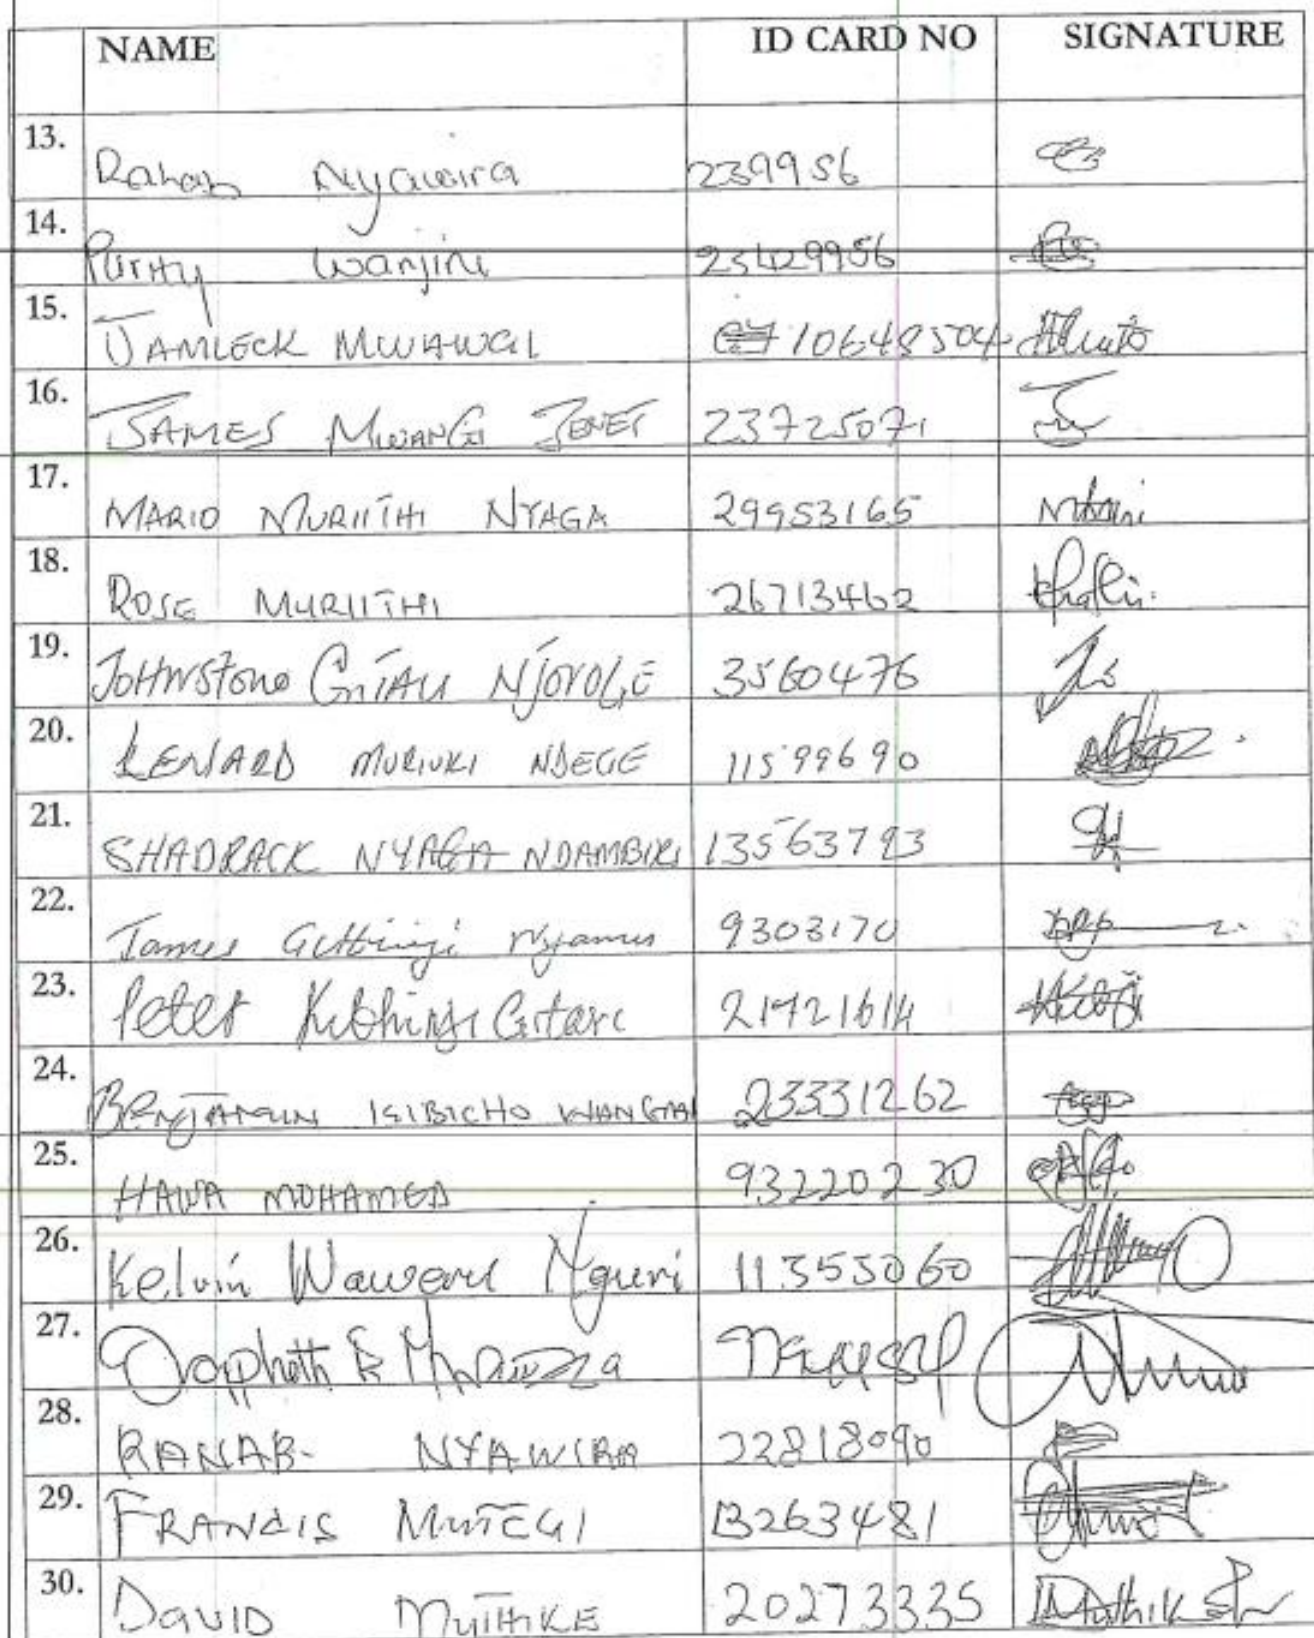 NAME ID CARD NO SIGNATURE
13. Rahab Nyawira 239956
14. Purity Wanjiru 23429956
15. JAMLECK MWANGI 10648504
16. JAMES MWANGI JENET 23725071
17. MARIO MURIITHI NYAGA 29953165
18. ROSE MURIITHI 26713462
19. JOHNSTONE GITAU NJOROGE 3560476
20. LENARD MURIUKI NDEGE 11599690
21. SHADRACK NYAGA NDAMBIRI 13563793
22. James Githinji Nyamu 9303170
23. Peter Kithinji Gitari 21421614
24. BENJAMIN KIBICHO WANGAI 23331262
25. HAWA MOHAMED 93220230
26. Kelvin Waweru Nguri 11355060
27.
28. RAHAB NYAWIRA 22818090
29. FRANCIS MUTEGI 13263481
30. DAVID MUTHIKE 20273335